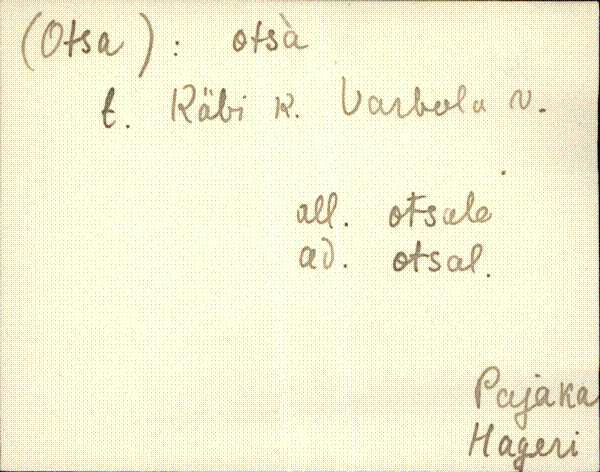 (Otsa) : otsà
t. Räbi k. Varbola v.
all. otsale
ad. otsal.
Pajaka
Hageri